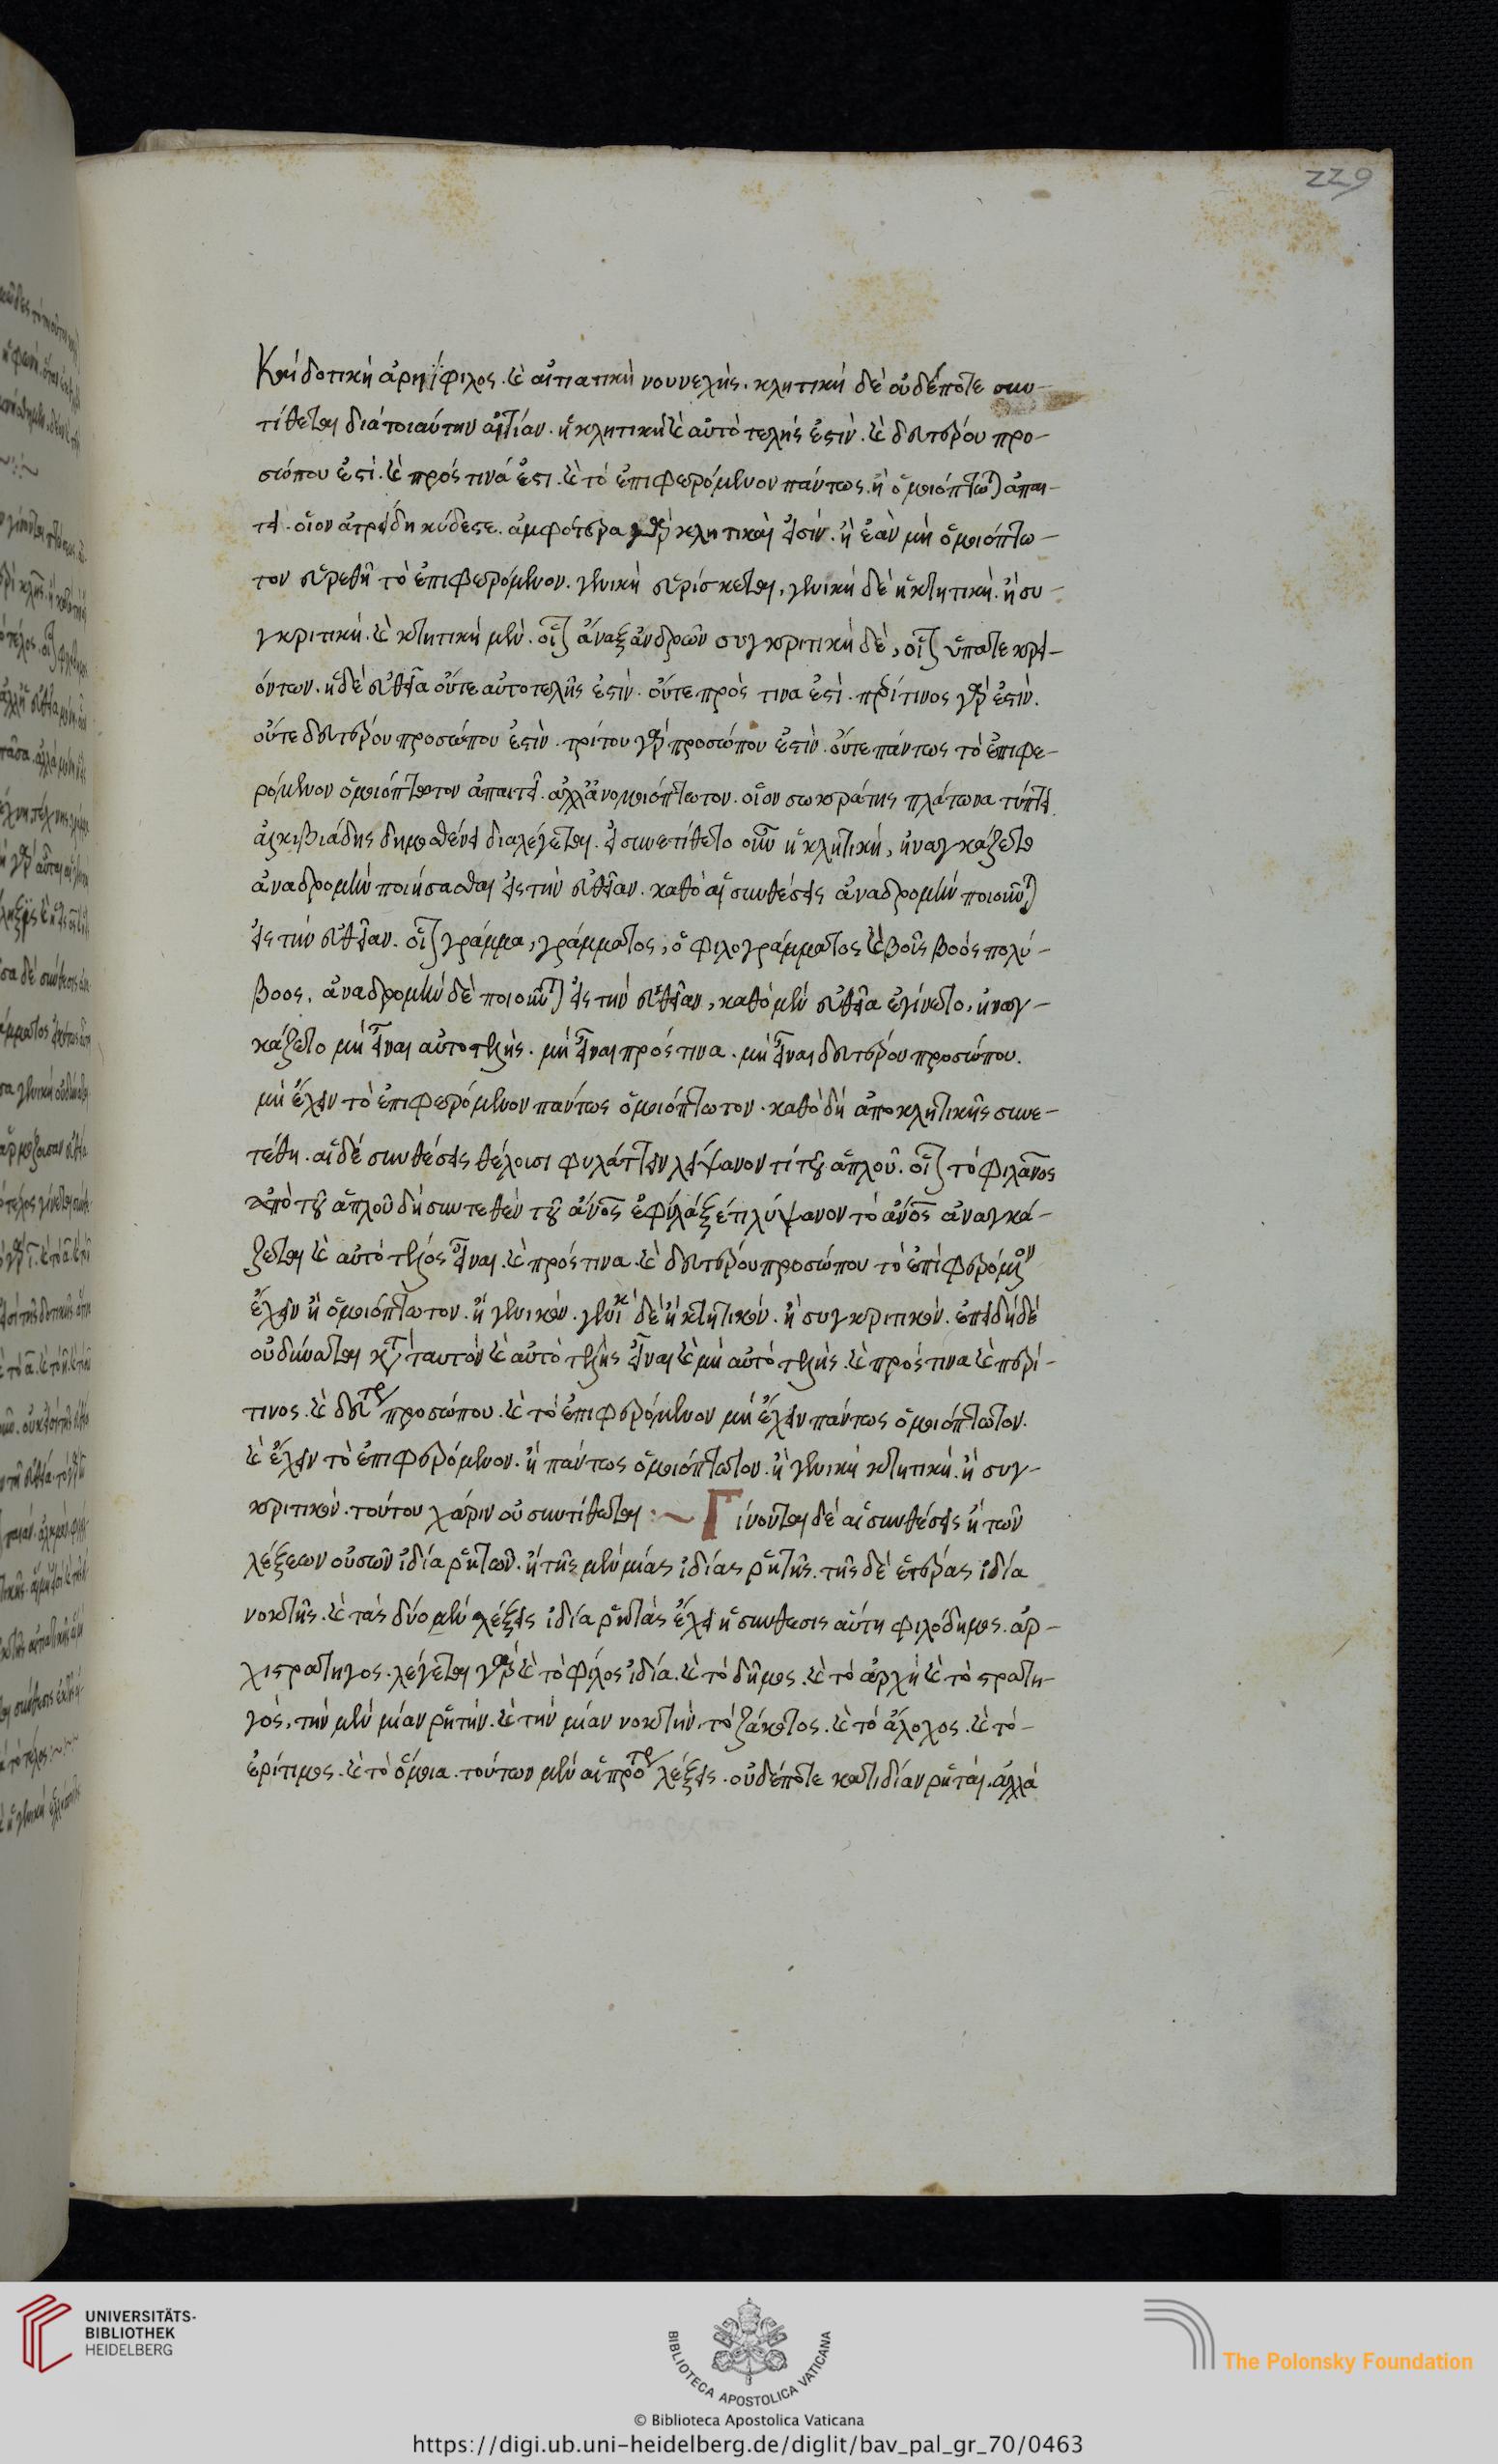 229
Καὶ δοτικὴ ἀρηΐφιλος. καὶ αἰτιατικὴ νουνεχής. κλητικὴ δὲ οὐδέποτε συν-
τίθεται διὰ τοιαύτην αἰτίαν. ἡ κλητικὴ καὶ αὐτοτελής ἐστιν. καὶ δευτέρου προ-
σώπου ἐστί. καὶ πρός τινά ἐστι. καὶ τὸ ἐπιφερόμενον πάντως ἢ ὁμοιόπτωτον ἀπαι-
τεῖ. οἷον ἀτρείδη κύδιστε. ἀμφότερα γὰρ κλητικαί εἰσιν. ἢ ἐὰν μὴ ὁμοιόπτω-
τον εὑρεθῆ τὸ ἐπιφερόμενον. γενικὴ εὑρίσκεται, γενικὴ δὲ ἢ κτητικὴ. ἢ συ-
γκριτική. καὶ κτητικὴ μὲν. οἷον ἄναξ ἀνδρῶν συγκριτικὴ δὲ, οἷον ὕπατε κρει-
όντων. ἡ δὲ εὐθεῖα οὔτε αὐτοτελής ἐστιν. οὔτε πρός τινα ἐστὶ. περί τινος γάρ ἐστιν.
οὔτε δευτέρου προσώπου ἐστὶν. τρίτου γὰρ προσώπου ἐστὶν. οὔτε πάντως τὸ ἐπιφε-
ρόμενον ὁμοιόπτωτον ἀπαιτεῖ. ἀλλ' ἀνομοιόπτωτον. οἷον σωκράτης πλάτωνα τύπτει.
ἀλκιβιάδης δημοσθένει διαλέγεται. εἰ συνετίθετο οὖν ἡ κλητικὴ, ἠναγκάζετο
ἀναδρομὴν ποιήσασθαι εἰς τὴν εὐθεῖαν. καθὸ αἱ συνθέσεις ἀναδρομὴν ποιοῦνται
εἰς τὴν εὐθεῖαν. οἷον γράμμα, γράμματος, ὁ φιλογράμματος καὶ βοῦς βοός πολύ-
βοος. ἀναδρομὴν δὲ ποιοῦνται εἰς τὴν εὐθεῖαν, καθὸ μὲν εὐθεῖα ἐγίνετο, ἠναγ-
κάζετο μὴ εἶναι αὐτοτελής. μὴ εἶναι πρός τινα. μὴ εἶναι δευτέρου προσώπου.
μὴ ἔχειν τὸ ἐπιφερόμενον πάντως ὁμοιόπτωτον. καθὸ δὴ ἀπὸ κλητικῆς συνε-
τέθη. αἱ δὲ συνθέσεις θέλουσι φυλάττειν λείψανον τί τοῦ ἁπλοῦ. οἷον τὸ φιλᾶνος
ἀπὸ τοῦ ἁπλοῦ δὴ συντεθὲν τοῦ ἄνος ἐφύλαξέ τι λύψανον τὸ ἄνος ἀναγκά-
ζεται καὶ αὐτοτελὸς εἶναι. καὶ πρός τινα. καὶ δευτέρου προσώπου τὸ ἐπιφερόμενον
ἔχειν ἢ ὁμοιόπτωτον. ἢ γενικόν. γενικ δὲ ἢ κτητικόν. ἢ συγκριτικόν. ἐπειδὴ δὲ
οὐ δύναται κατὰ ταυτὸν καὶ αὐτοτελὴς εἶναι καὶ μὴ αὐτοτελής. καὶ πρός τινα καὶ περί
τινος. καὶ δευτέρου προσώπου. καὶ τὸ ἐπιφερόμενον μὴ ἔχειν πάντως ὁμοιόπτωτον.
καὶ ἔχειν τὸ ἐπιφερόμενον. ἢ πάντως ὁμοιόπτωτον. ἢ γενικὴ κτητικὴ. ἢ συγ-
κριτικόν. τούτου χάριν οὐ συντίθεται :~ Γίνονται δὲ αἱ συνθέσεις ἢ τῶν
λέξεων οὐσῶν ἰδία ῥητῶν. ἢ τῆς μὲν μίας ἰδίας ῥητῆς. τῆς δὲ ἑτέρας ἰδία
νοητῆς. καὶ τὰς δύο μὲν λέξεις ἰδία ῥητὰς ἔχει ἡ σύνθεσις αὕτη φιλόδημος. ἀρ-
χιστράτηγος. λέγεται γὰρ καὶ τὸ φίλος ἰδία. καὶ τὸ δῆμος. καὶ τὸ ἀρχὴ καὶ τὸ στρατη-
γός, τὴν μὲν μίαν ῥητήν. καὶ τὴν μίαν νοητὴν, τὸ ζάκοτος. καὶ τὸ ἄλοχος. καὶ τὸ
ἐρίτιμος. καὶ τὸ ὅμοια. τούτων μὲν αἱ πρότεραι λέξεις. οὐδέποτε κατιδίαν ῥηταί. ἀλλὰ
UNIVERSITÄTS-
BIBLIOTHEK
HEIDELBERG
BIBLIOTECA APOSTOLICA VATICANA
The Polonsky Foundation
© Biblioteca Apostolica Vaticana
https://digi.ub.uni-heidelberg.de/diglit/bav_pal_gr_70/0463